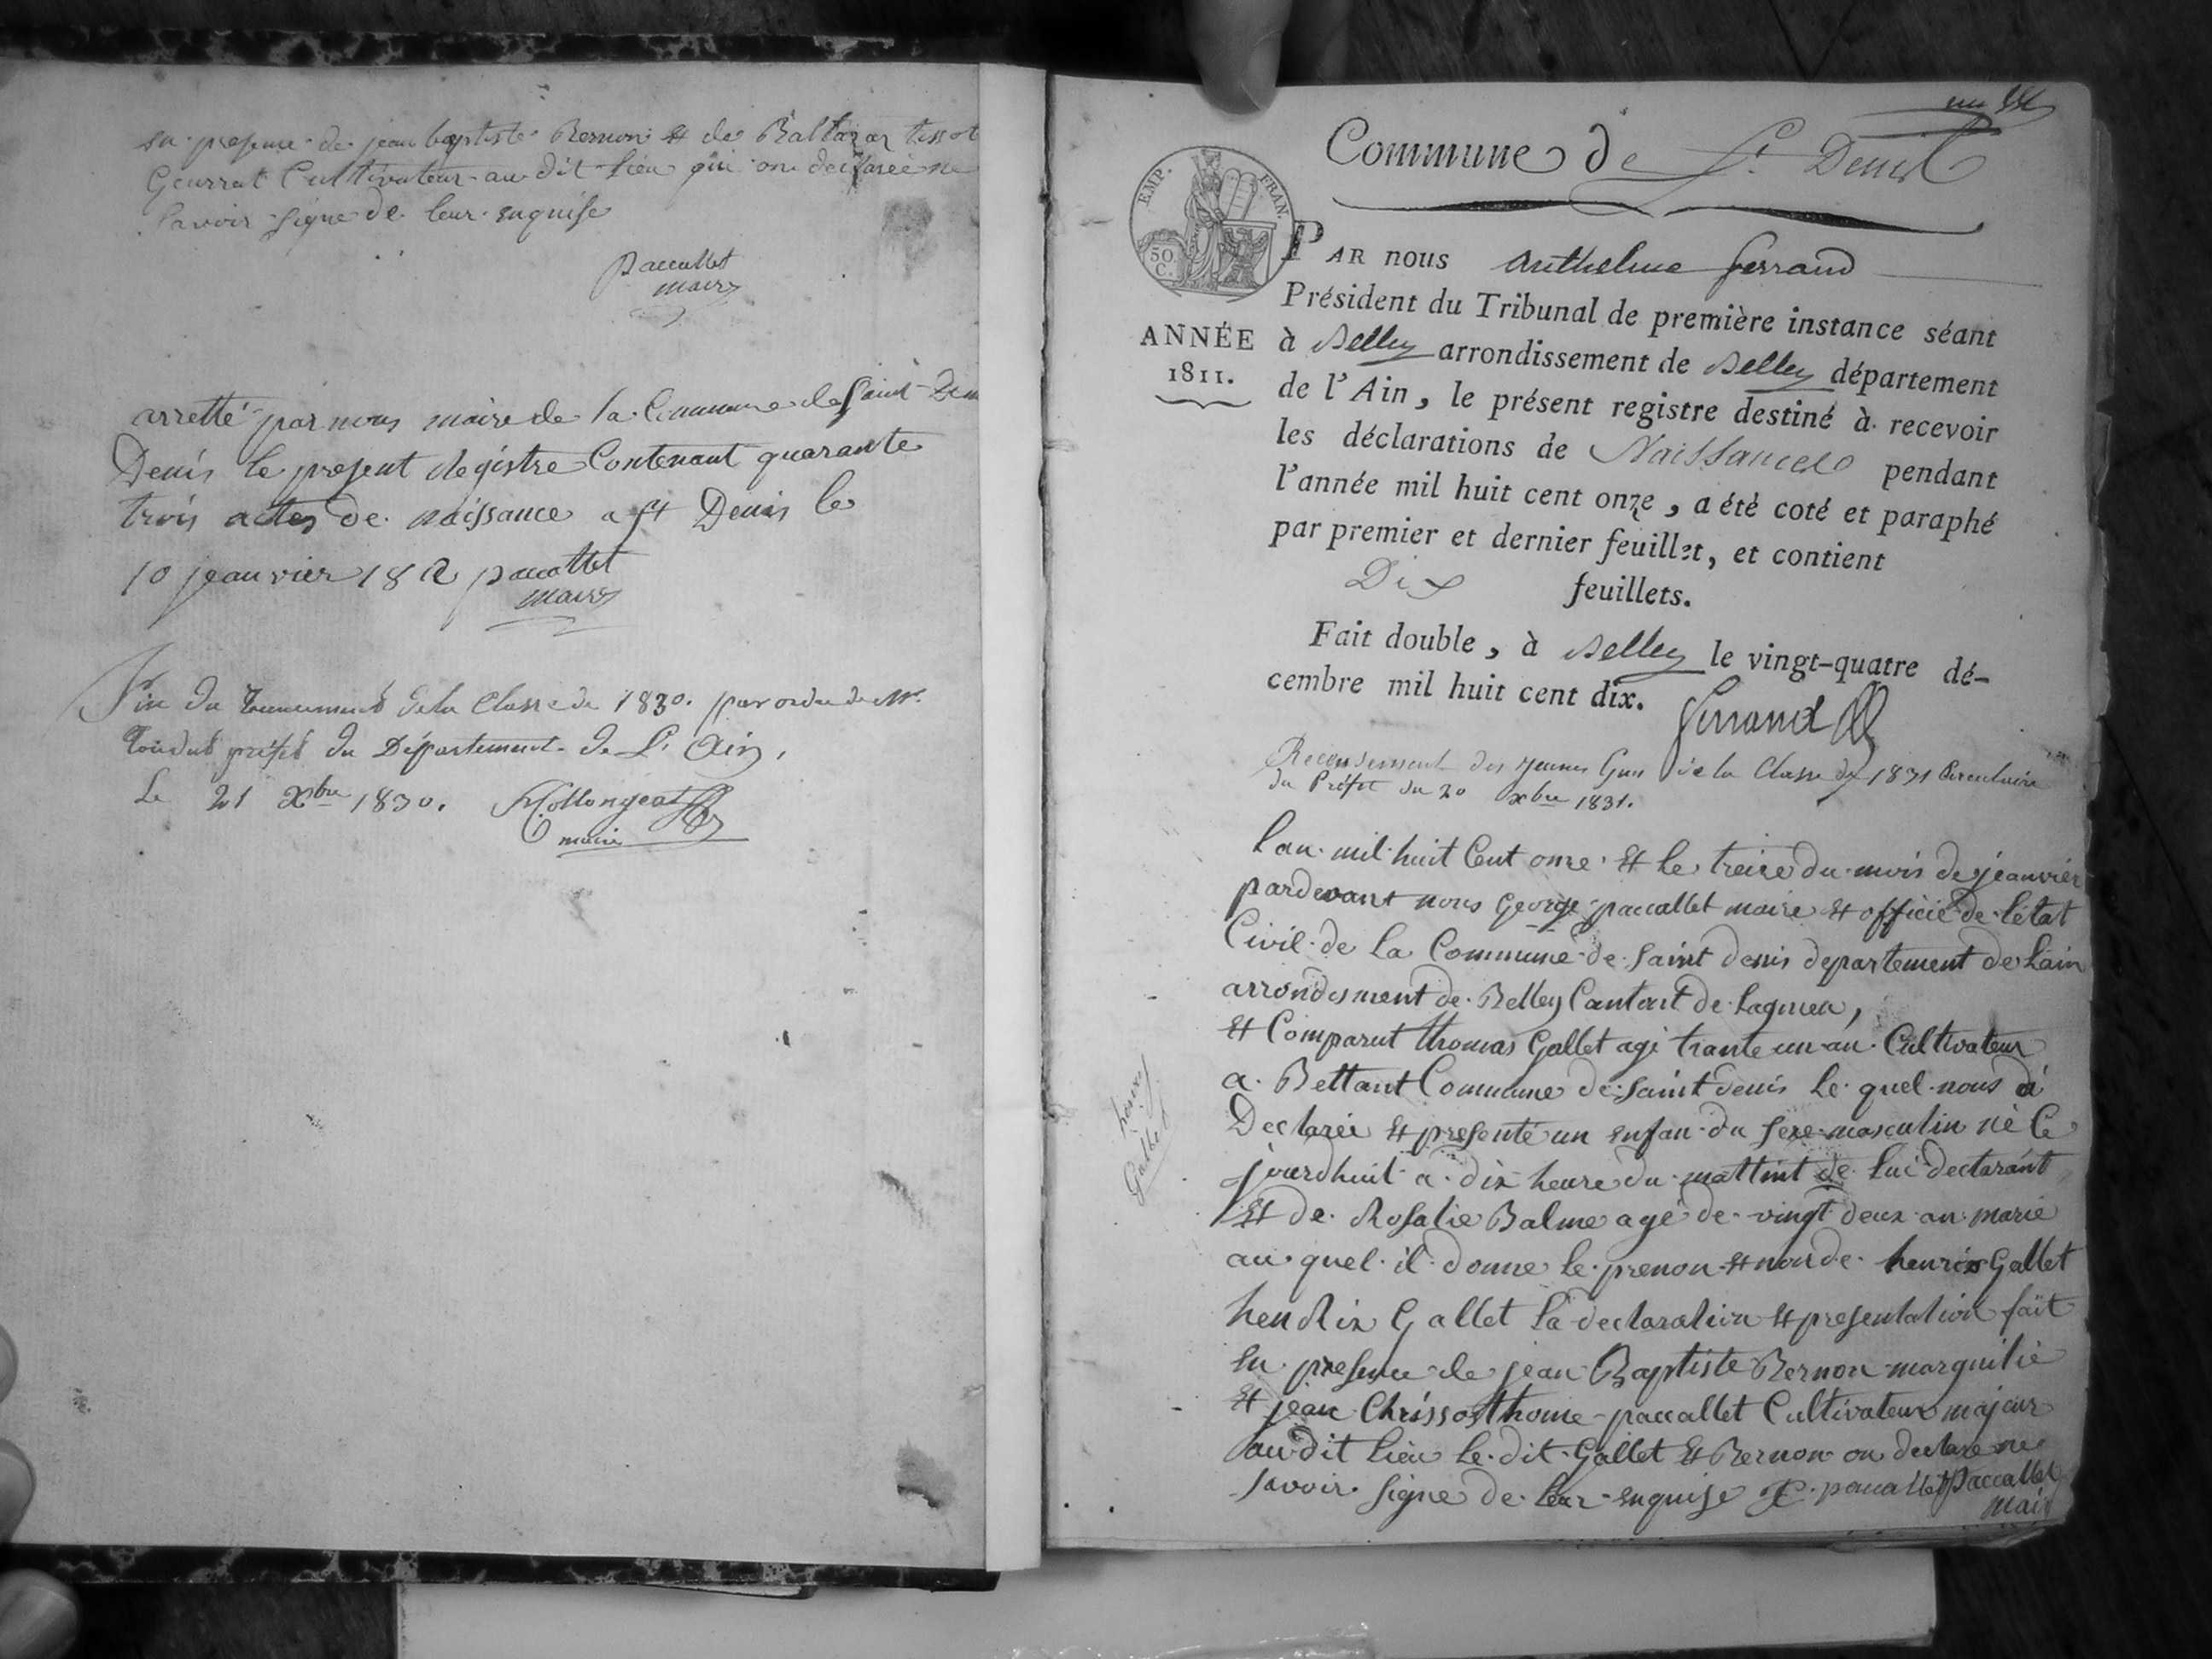 en presence de jean baptiste Bernon et de Baltazar tissot
Gourrat Cultivateur au dit lieu qui on declareé ne
savoir signe de leur enquise
paccallet
maire
arretté par nous maire de la Commune de Saint Den
Denis le present Registre Contenant quarante
trois actes de naissance a st Denis le
10 jeanvier 1812 paccallet
maire
de la Classe de 1830. par ordre de Mr.
préfet du Département de L'Ain,
Le 21 Xbre 1830.
maire
Commune de St. Denis
EMP. FRAN.
50 C.
PAR nous Anthelme ferrand
Président du Tribunal de première instance séant
ANNÉE
1811.
à Belley arrondissement de Belley département
de l'Ain, le présent registre destiné à recevoir
les déclarations de Naissances pendant
l'année mil huit cent onze, a été coté et paraphé
par premier et dernier feuillet, et contient
Dix feuillets.
Fait double, à Belley le vingt-quatre dé-
cembre mil huit cent dix.
Ferrand
Recensement des jeunes Gens de la Classe de 1831 Circulaire
du Préfet du 20 xbre 1831.
henrix
Gallet
lan mil huit Cent onze et le treize du mois de jeanvier
pardevant nous George paccallet maire et officié de létat
Civil de la Commune de saint denis departement de lain
arrondisment de Belley Cantont de lagnieu,
et Comparut thomas Gallet agé trante un an Cultivateur
a Bettant Commune de saint denis le quel nous à
Declareé et presenté un enfan du sexe masculin né Ce
jourdhuit a dix heure du mattint de lui declarant
et de Rosalie Balme agé de vingt deux an marié
au quel il donne le prenon et non de henrix Gallet
hendrix Gallet la declaration et presentation fait
en presence de jean Baptiste Bernon marguilié
et jean Chrissosthome paccallet Cultivateur majeur
audit lieu le dit Gallet et Bernon on declare ne
savoir signe de leur enquise paccallet Paccallet
maire